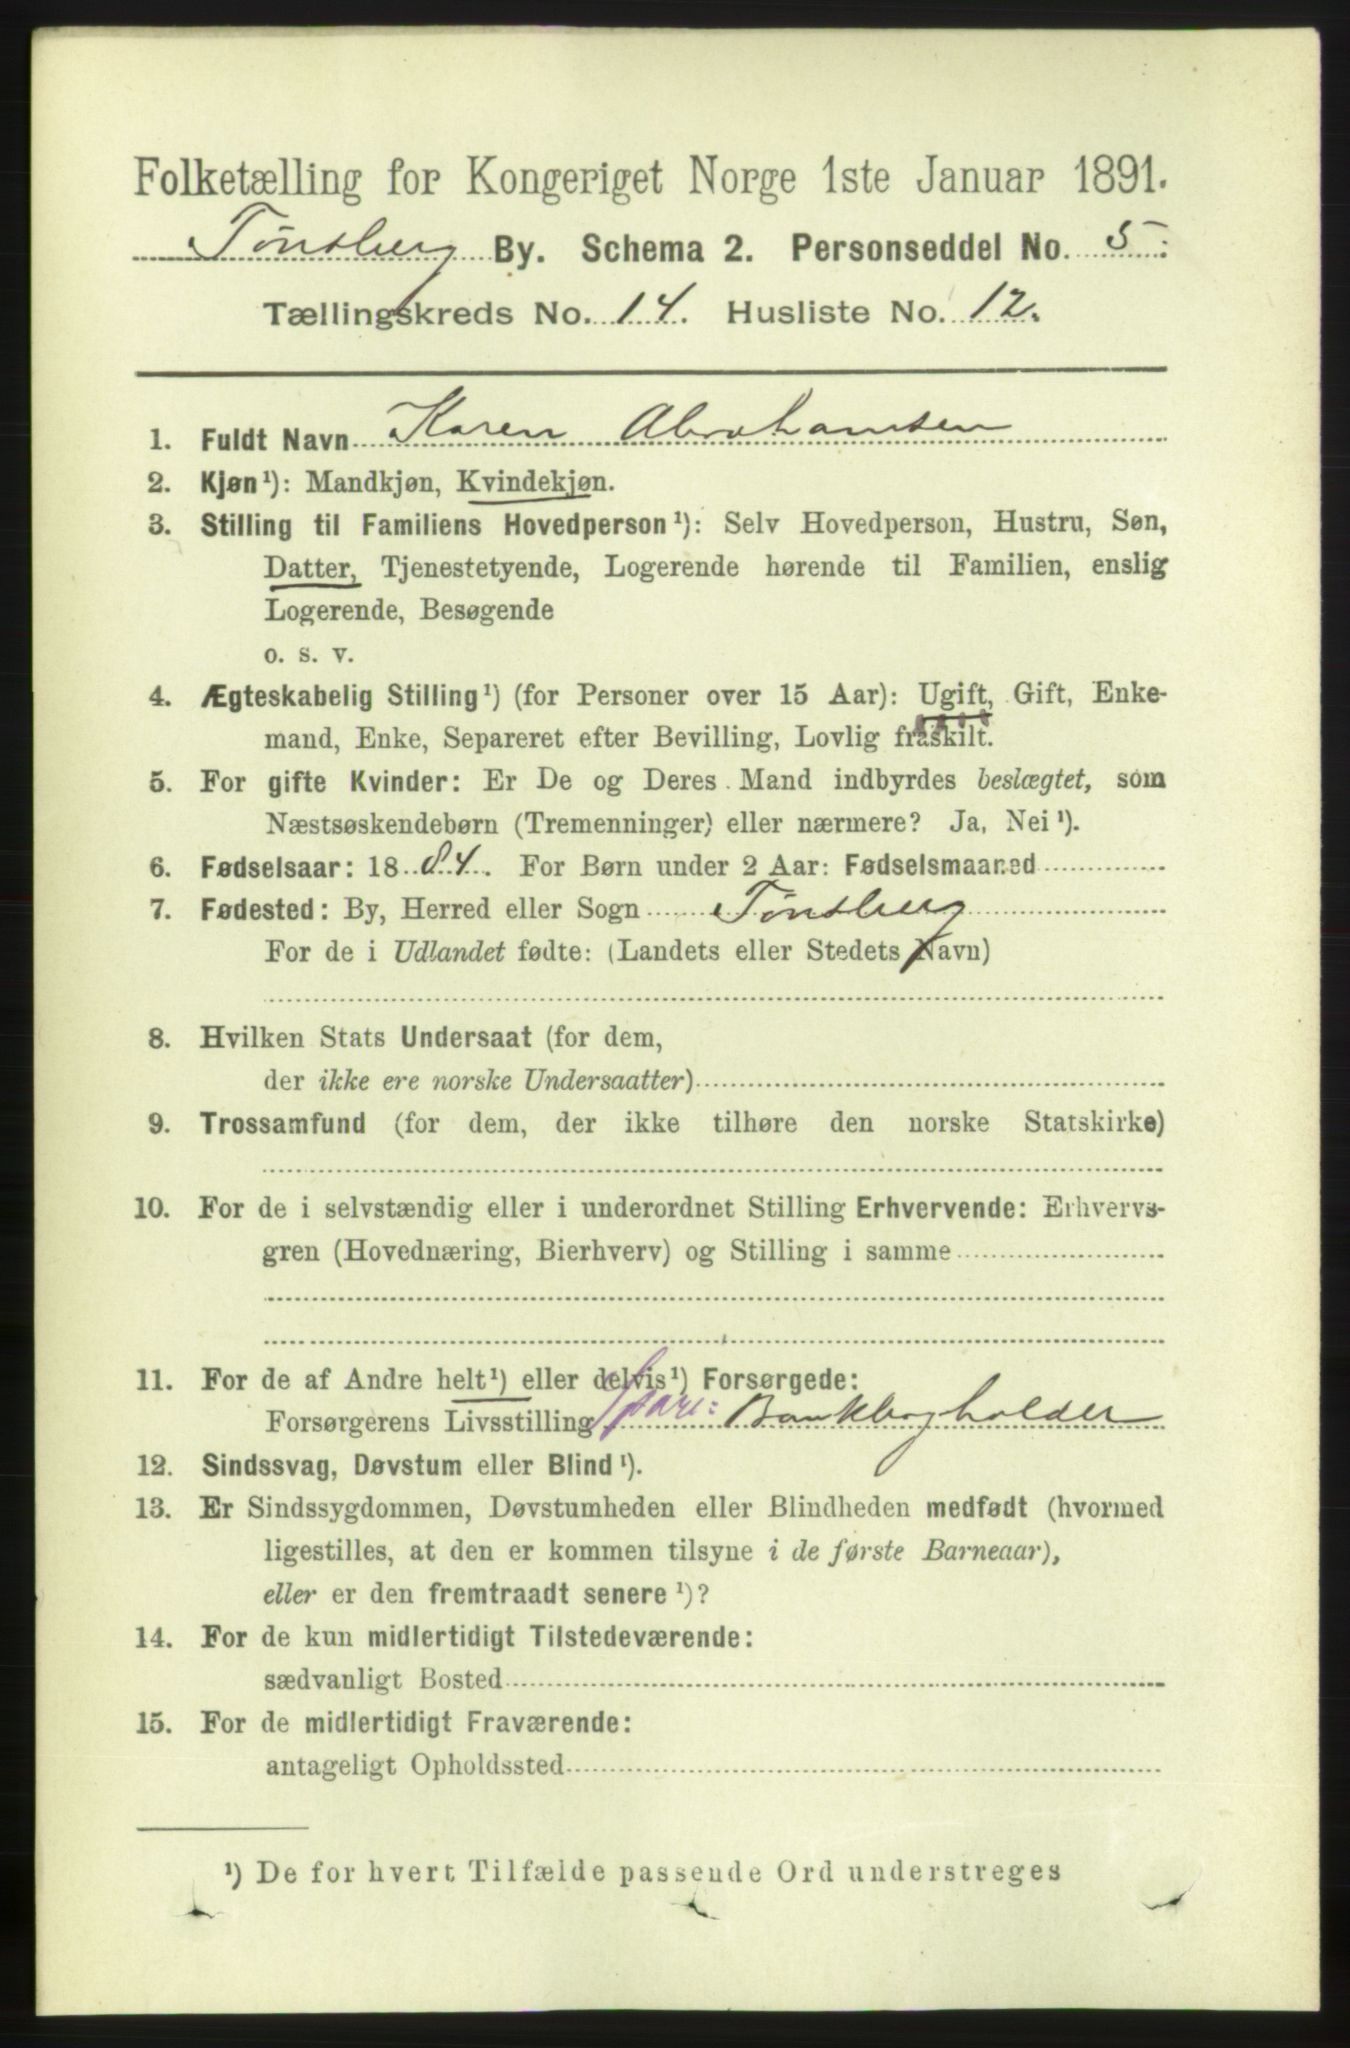 Folketælling for Kongeriget Norge 1ste Januar 1891.
Tønsberg By. Schema 2. Personseddel No. 5.
Tællingskreds No. 14. Husliste No. 12.
1. Fuldt Navn Karen Abrahamsen
2. Kjøn¹): Mandkjøn, Kvindekjøn.
3. Stilling til Familiens Hovedperson¹): Selv Hovedperson, Hustru, Søn,
Datter, Tjenestetyende, Logerende hørende til Familien, enslig
Logerende, Besøgende
o. s. v.
4. Ægteskabelig Stilling¹) (for Personer over 15 Aar): Ugift, Gift, Enke-
mand, Enke, Separeret efter Bevilling, Lovlig fraskilt.
5. For gifte Kvinder: Er De og Deres Mand indbyrdes beslægtet, som
Næstsøskendebørn (Tremenninger) eller nærmere? Ja, Nei¹).
6. Fødselsaar: 1884. For Børn under 2 Aar: Fødselsmaaned
7. Fødested: By, Herred eller Sogn Tønsberg
For de i Udlandet fødte: (Landets eller Stedets Navn)
8. Hvilken Stats Undersaat (for dem,
der ikke ere norske Undersaatter)
9. Trossamfund (for dem, der ikke tilhøre den norske Statskirke)
10. For de i selvstændig eller i underordnet Stilling Erhvervende: Erhvervs-
gren (Hovednæring, Bierhverv) og Stilling i samme
11. For de af Andre helt¹) eller delvis¹) Forsørgede:
Forsørgerens Livsstilling Spare: Bankbogholder
12. Sindssvag, Døvstum eller Blind¹).
13. Er Sindssygdommen, Døvstumheden eller Blindheden medfødt (hvormed
ligestilles, at den er kommen tilsyne i de første Barneaar),
eller er den fremtraadt senere¹)?
14. For de kun midlertidigt Tilstedeværende:
sædvanligt Bosted
15. For de midlertidigt Fraværende:
antageligt Opholdssted
¹) De for hvert Tilfælde passende Ord understreges